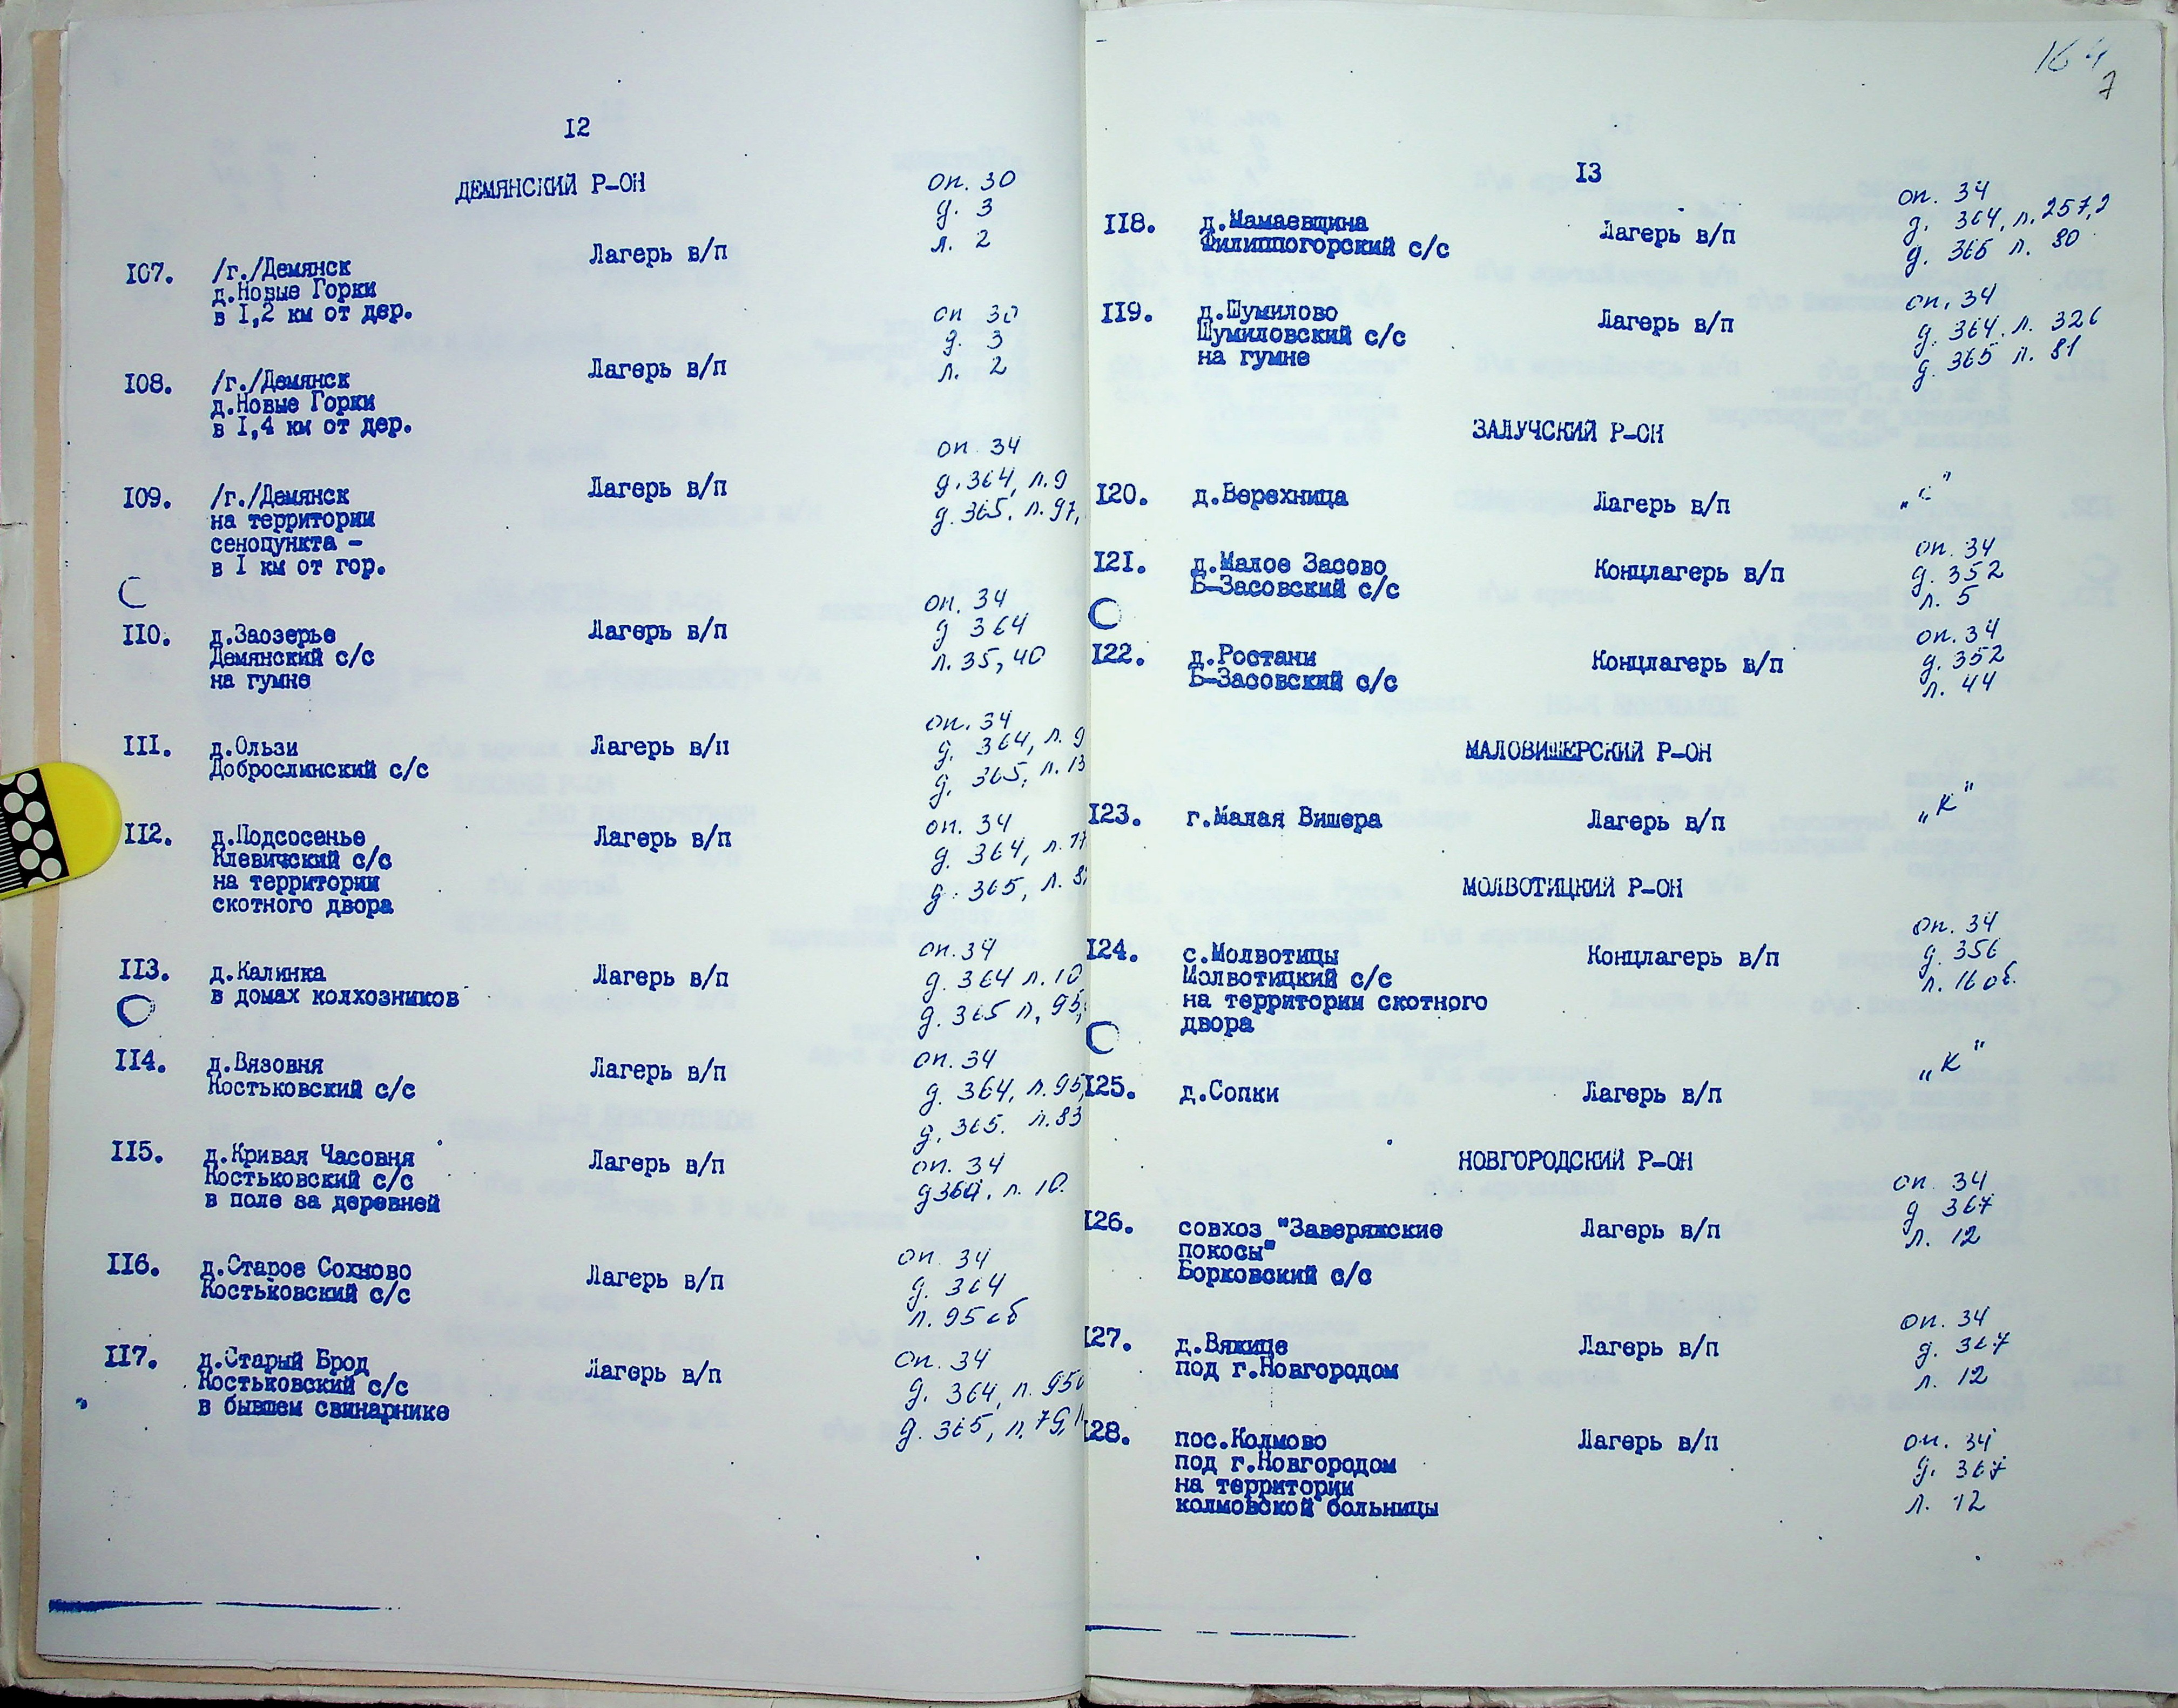 12
ДЕМЯНСКИЙ Р-ОН
оп. 30
д. 3
л. 2
107. /г./Демянск Лагерь в/п
д.Новые Горки
в 1,2 км от дер.
оп 30
д. 3
л. 2
108. /г./Демянск Лагерь в/п
д.Новые Горки
в 1,4 км от дер.
оп. 34
д. 364, л. 9
д. 365. л. 97,
109. /г./Демянск Лагерь в/п
на территории
сенопункта -
в 1 км от гор.
оп. 34
д 364
л. 35, 40
110. д.Заозерье Лагерь в/п
Демянский с/с
на гумне
оп. 34
д. 364, л. 9
д. 365, л. 13
111. д.Ользи Лагерь в/п
Доброслинский с/с
оп. 34
д. 364, л.
д. 365, л. 8
112. д.Подсосенье Лагерь в/п
Клевичский с/с
на территории
скотного двора
оп. 34
д. 364 л. 10
д. 365 л, 95,
113. д.Калинка Лагерь в/п
в домах колхозников
оп. 34
д. 364, л. 95,
д. 365. л. 83
114. д.Вязовня Лагерь в/п
Костьковский с/с
оп. 34
д 364. л. 10.
115. д.Кривая Часовня Лагерь в/п
Костьковский с/с
в поле за деревней
оп. 34
д. 364
л. 95 об
116. д.Старое Сохново Лагерь в/п
Костьковский с/с
оп. 34
д. 364, л. 95
д. 365, л. 79,
117. д.Старый Брод Лагерь в/п
Костьковский с/с
в бывшем свинарнике
164
7
13
оп. 34
д. 364, л. 257,2
д. 365 л. 80
118. д.Мамаевщина Лагерь в/п
Филиппогорский с/с
оп. 34
д. 364. л. 326
д. 365 л. 81
119. д.Шумилово Лагерь в/п
Шумиловский с/с
на гумне
ЗАЛУЧСКИЙ Р-ОН
120. д.Верехница Лагерь в/п „с"
оп. 34
д. 352
л. 5
121. д.Малое Засово Концлагерь в/п
Б-Засовский с/с
оп. 34
д. 352
л. 44
122. д.Ростани Концлагерь в/п
Б-Засовский с/с
МАЛОВИШЕРСКИЙ Р-ОН
123. г.Малая Вишера Лагерь в/п „К"
МОЛВОТИЦКИЙ Р-ОН
оп. 34
д. 356
л. 16 об.
124. с.Молвотицы Концлагерь в/п
Молвотицкий с/с
на территории скотного
двора
125. д.Сопки Лагерь в/п „К"
НОВГОРОДСКИЙ Р-ОН
оп. 34
д 367
л. 12
126. совхоз "Заверяжские Лагерь в/п
покосы"
Борковский с/с
оп. 34
д. 367
л. 12
127. д.Вяжище Лагерь в/п
под г.Новгородом
оп. 34
д. 367
л. 12
128. пос.Колмово Лагерь в/п
под г.Новгородом
на территории
колмовской больницы